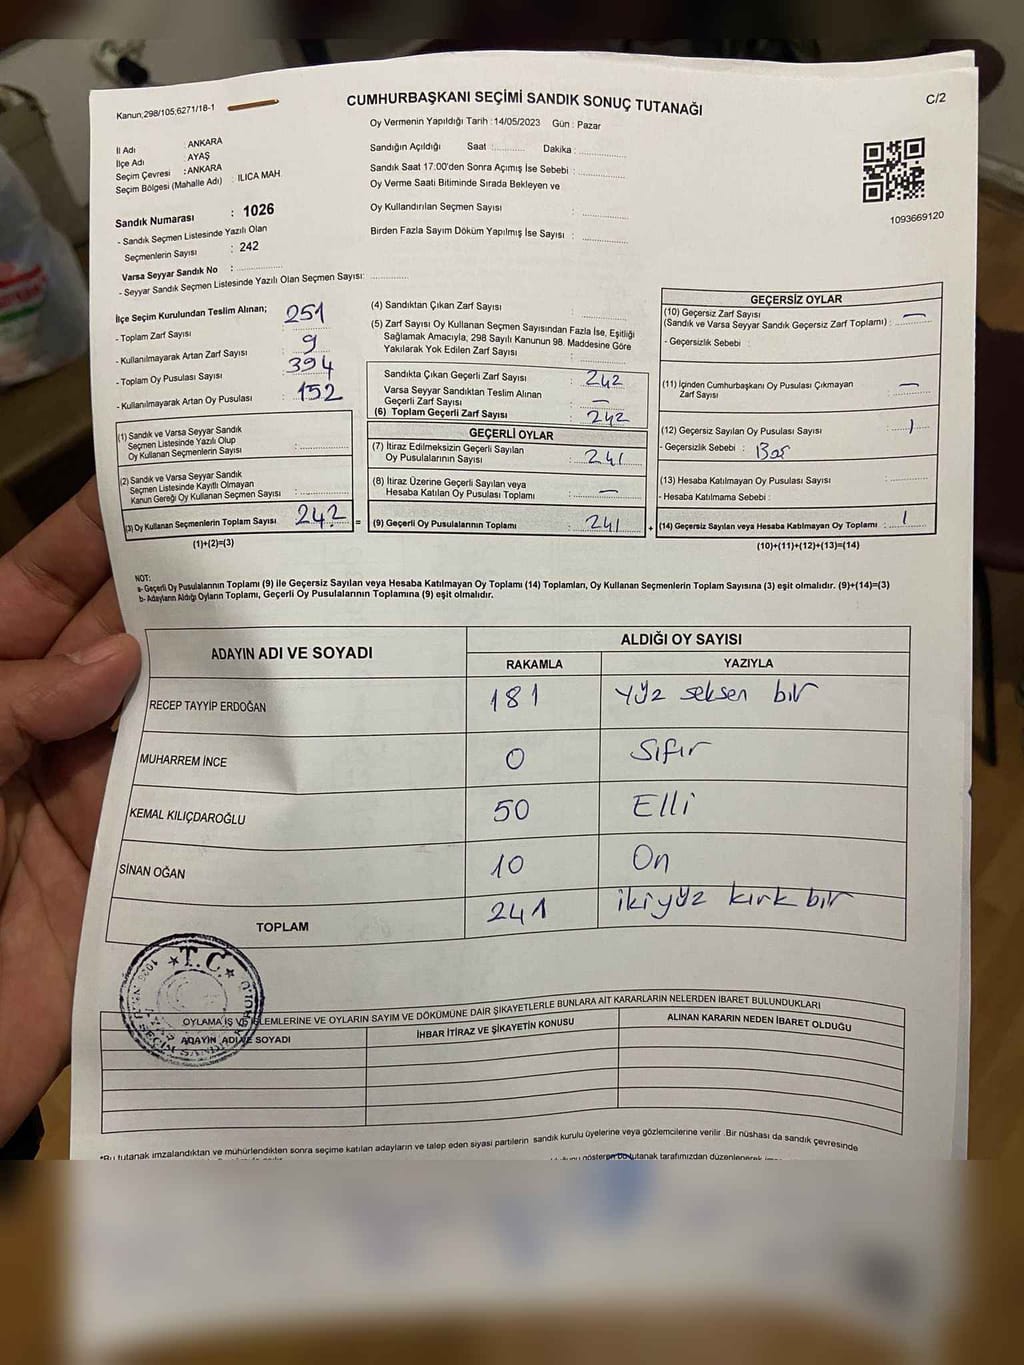 Kanun;298/105;6271/18-1
CUMHURBAŞKANI SEÇİMİ SANDIK SONUÇ TUTANAĞI
C/2
Oy Vermenin Yapıldığı Tarih :14/05/2023 Gün : Pazar
İl Adı : ANKARA
İlçe Adı : AYAŞ
Seçim Çevresi : ANKARA
Seçim Bölgesi (Mahalle Adı) : ILICA MAH
Sandık Numarası : 1026
- Sandık Seçmen Listesinde Yazılı Olan
Seçmenlerin Sayısı : 242
Varsa Seyyar Sandık No :
- Seyyar Sandık Seçmen Listesinde Yazılı Olan Seçmen Sayısı:
Sandığın Açıldığı Saat : Dakika :
Sandık Saat 17:00'den Sonra Açımış İse Sebebi :
Oy Verme Saati Bitiminde Sırada Bekleyen ve
Oy Kullandırılan Seçmen Sayısı :
Birden Fazla Sayım Döküm Yapılmış İse Sayısı :
1093669120
İlçe Seçim Kurulundan Teslim Alınan;
- Toplam Zarf Sayısı : 251
- Kullanılmayarak Artan Zarf Sayısı : 9
- Toplam Oy Pusulası Sayısı : 394
- Kullanılmayarak Artan Oy Pusulası : 152
(1) Sandık ve Varsa Seyyar Sandık
Seçmen Listesinde Yazılı Olup
Oy Kullanan Seçmenlerin Sayısı :
(2) Sandık ve Varsa Seyyar Sandık
Seçmen Listesinde Kayıtlı Olmayan
Kanun Gereği Oy Kullanan Seçmen Sayısı :
(3) Oy Kullanan Seçmenlerin Toplam Sayısı : 242 =
(1)+(2)=(3)
(4) Sandıktan Çıkan Zarf Sayısı :
(5) Zarf Sayısı Oy Kullanan Seçmen Sayısından Fazla İse, Eşitliği
Sağlamak Amacıyla; 298 Sayılı Kanunun 98. Maddesine Göre
Yakılarak Yok Edilen Zarf Sayısı :
Sandıkta Çıkan Geçerli Zarf Sayısı : 242
Varsa Seyyar Sandıktan Teslim Alınan
Geçerli Zarf Sayısı : —
(6) Toplam Geçerli Zarf Sayısı : 242
GEÇERLİ OYLAR
(7) İtiraz Edilmeksizin Geçerli Sayılan
Oy Pusulalarının Sayısı : 241
(8) İtiraz Üzerine Geçerli Sayılan veya
Hesaba Katılan Oy Pusulası Toplamı : —
(9) Geçerli Oy Pusulalarının Toplamı : 241 +
GEÇERSİZ OYLAR
(10) Geçersiz Zarf Sayısı
(Sandık ve Varsa Seyyar Sandık Geçersiz Zarf Toplamı) : —
- Geçersizlik Sebebi :
(11) İçinden Cumhurbaşkanı Oy Pusulası Çıkmayan
Zarf Sayısı : —
(12) Geçersiz Sayılan Oy Pusulası Sayısı : 1
- Geçersizlik Sebebi : Boş
(13) Hesaba Katılmayan Oy Pusulası Sayısı :
- Hesaba Katılmama Sebebi :
(14) Geçersiz Sayılan veya Hesaba Katılmayan Oy Toplamı : 1
(10)+(11)+(12)+(13)=(14)
NOT:
a- Geçerli Oy Pusulalarının Toplamı (9) ile Geçersiz Sayılan veya Hesaba Katılmayan Oy Toplamı (14) Toplamları, Oy Kullanan Seçmenlerin Toplam Sayısına (3) eşit olmalıdır. (9)+(14)=(3)
b- Adayların Aldığı Oyların Toplamı, Geçerli Oy Pusulalarının Toplamına (9) eşit olmalıdır.
ADAYIN ADI VE SOYADI ALDIĞI OY SAYISI
RAKAMLA YAZIYLA
RECEP TAYYİP ERDOĞAN 181 Yüz seksen bir
MUHARREM İNCE 0 Sıfır
KEMAL KILIÇDAROĞLU 50 Elli
SİNAN OĞAN 10 On
TOPLAM 241 ikiyüz kırk bir
T.C.
OYLAMA İŞ VE İŞLEMLERİNE VE OYLARIN SAYIM VE DÖKÜMÜNE DAİR ŞİKAYETLERLE BUNLARA AİT KARARLARIN NELERDEN İBARET BULUNDUKLARI
ADAYIN ADI VE SOYADI İHBAR İTİRAZ VE ŞİKAYETİN KONUSU ALINAN KARARIN NEDEN İBARET OLDUĞU
*Bu tutanak imzalandıktan ve mühürlendikten sonra seçime katılan adayların ve talep eden siyasi partilerin sandık kurulu üyelerine veya gözlemcilerine verilir .Bir nüshası da sandık çevresinde
gösteren bu tutanak tarafımızdan düzenlenerek